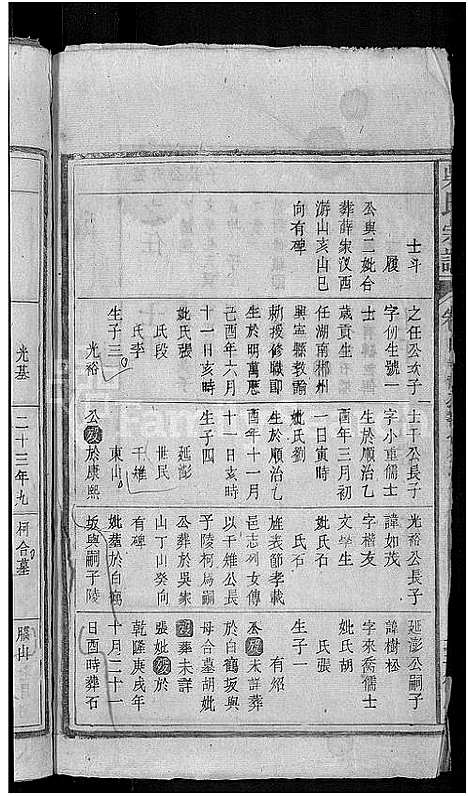 吳氏宗譜
士斗
履
公與二妣合
葬薛家汊西
游山亥山巳
向有碑
之任公次子
字仞生號一
士
歲貢生
任湖南郴州
興寧縣教諭
勅授修職郎
生於明萬曆
己酉年六月
十一日亥時
妣氏張
氏段
氏李
生子三
光裕
士干公長子
字小重儒士
生於順治乙
酉年三月初
一日寅時
妣氏劉
生於順治乙
酉年十一月
十一日亥時
生子四
延彭
世民
于維
東山
公歿於康熙
光裕公長子
諱如茂
字楷友
文學生
妣氏石
氏石
旌表節孝載
邑志列女傳
以于維公長
子陵柯爲嗣
公葬於吳家
山丁山癸向
有碑
妣葬於白鶴
坂與嗣子陵
延彭公嗣子
諱樹松
字來喬儒士
妣氏胡
氏張
生子一
有紹
公歿未詳葬
於白鶴坂與
母合墓胡妣
歿葬未詳
張妣歿於
乾隆庚戌年
十月二十一
日酉時葬石
光基
二十三年九
柯合墓
勝山